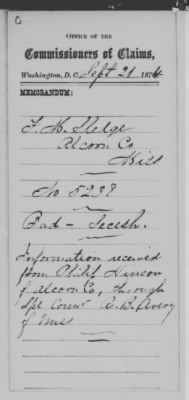 OFFICE OF THE
Commissioners of Claims,
Washington, D.C. Sept 21 1874
MEMORANDUM:
Sledge
Alcorn Co
Miss
No 8237
Bad - Secesh.
Information received
from Hinson
of Alcorn Co, through
Spl Comr Avery
of